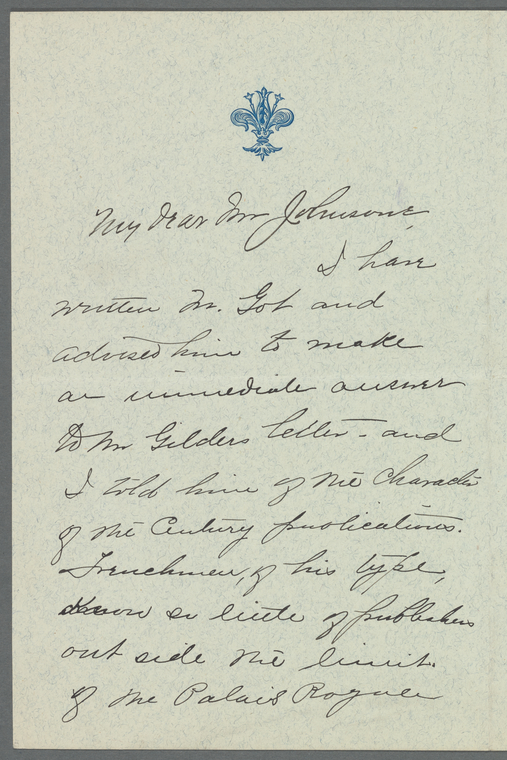 My dear Mr Johnson,
I have
written M. Got and
advised him to make
an immediate answer
to Mr Gilders letter - and
I told him of the character
of the Century publications.
Frenchmen, of his type,
know so little of publishers
out side the limit
of the Palais Royale